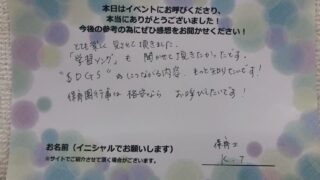 本日はイベントにお呼びくださり、
本当にありがとうございました!
今後の参考の為にぜひ感想をお聞かせください!
とても楽しく見させて頂きました。
「学習ソング」も聞かせて頂きたかったです。
"SDGS"のにつながる内容、もっと知りたいです!
保育園行事は格安なら お呼びしたいです!
お名前(イニシャルでお願いします)
※サイトでご紹介させて頂く場合がございます。
保育士
K.T